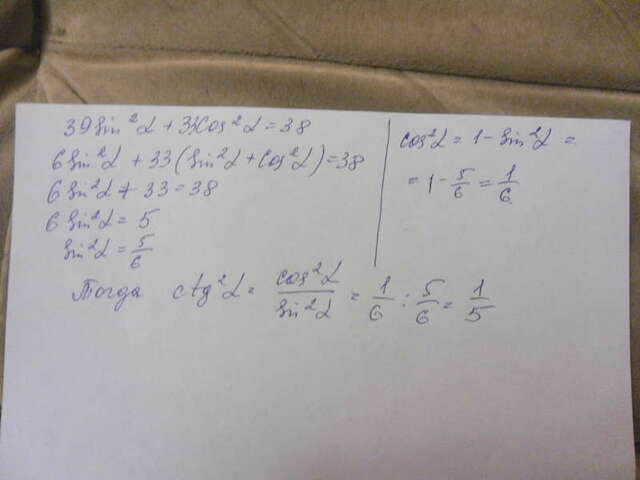 39 sin²α + 33cos²α = 38
6 sin²α + 33(sin²α + cos²α) = 38
6 sin²α + 33 = 38
6 sin²α = 5
sin²α = 5/6
cos²α = 1 - sin²α =
= 1 - 5/6 = 1/6
Тогда ctg²α = cos²α/sin²α = 1/6 : 5/6 = 1/5